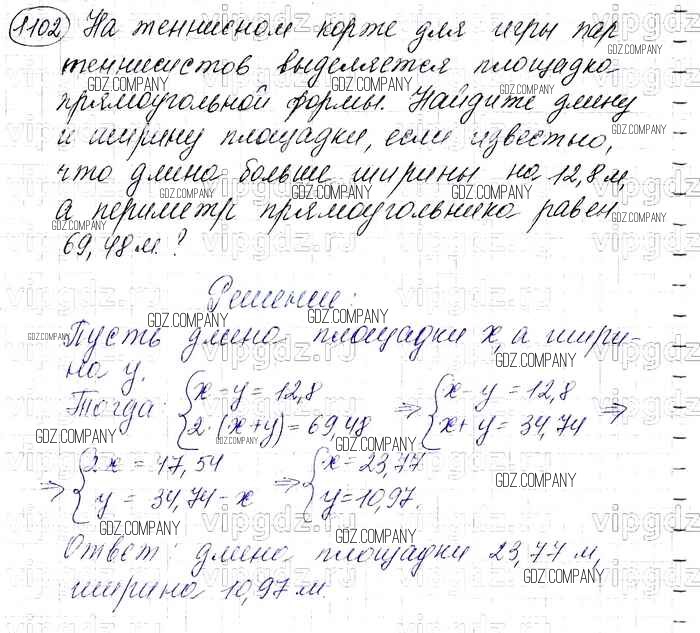 1102 На теннисном корте для игры пар
теннисистов выделяется площадка
прямоугольной формы. Найдите длину
и ширину площадки, если известно,
что длина больше ширины на 12,8 м,
а периметр прямоугольника равен
69,48 м.?
Решение:
Пусть длина площадки x, а шири-
на y.
Тогда: { x - y = 12,8 ⇒ { x - y = 12,8 ⇒
2·(x+y) = 69,48 x + y = 34,74
⇒ { 2x = 47,54 ⇒ { x = 23,77
y = 34,74 - x y = 10,97.
Ответ: длина площадки 23,77 м,
ширина 10,97 м.
GDZ.COMPANY
vipgdz.ru